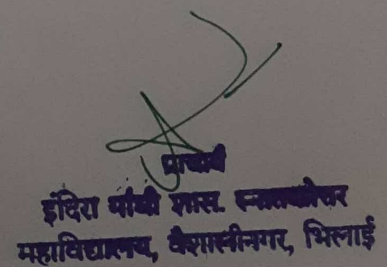 प्राचार्य
इंदिरा गाँधी शास. स्नातकोत्तर
महाविद्यालय, वैशालीनगर, भिलाई